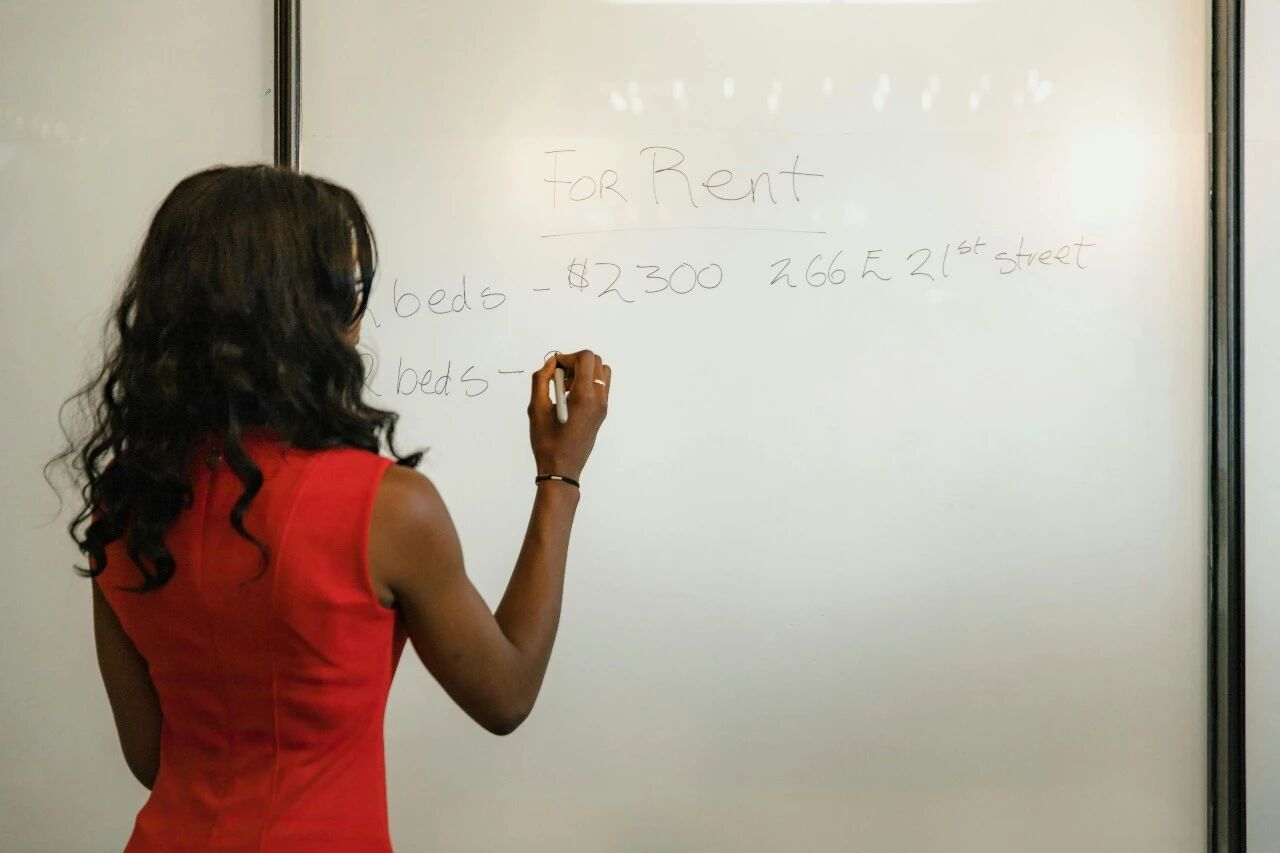 FOR Rent
beds - $2300 266 E 21st street
beds -